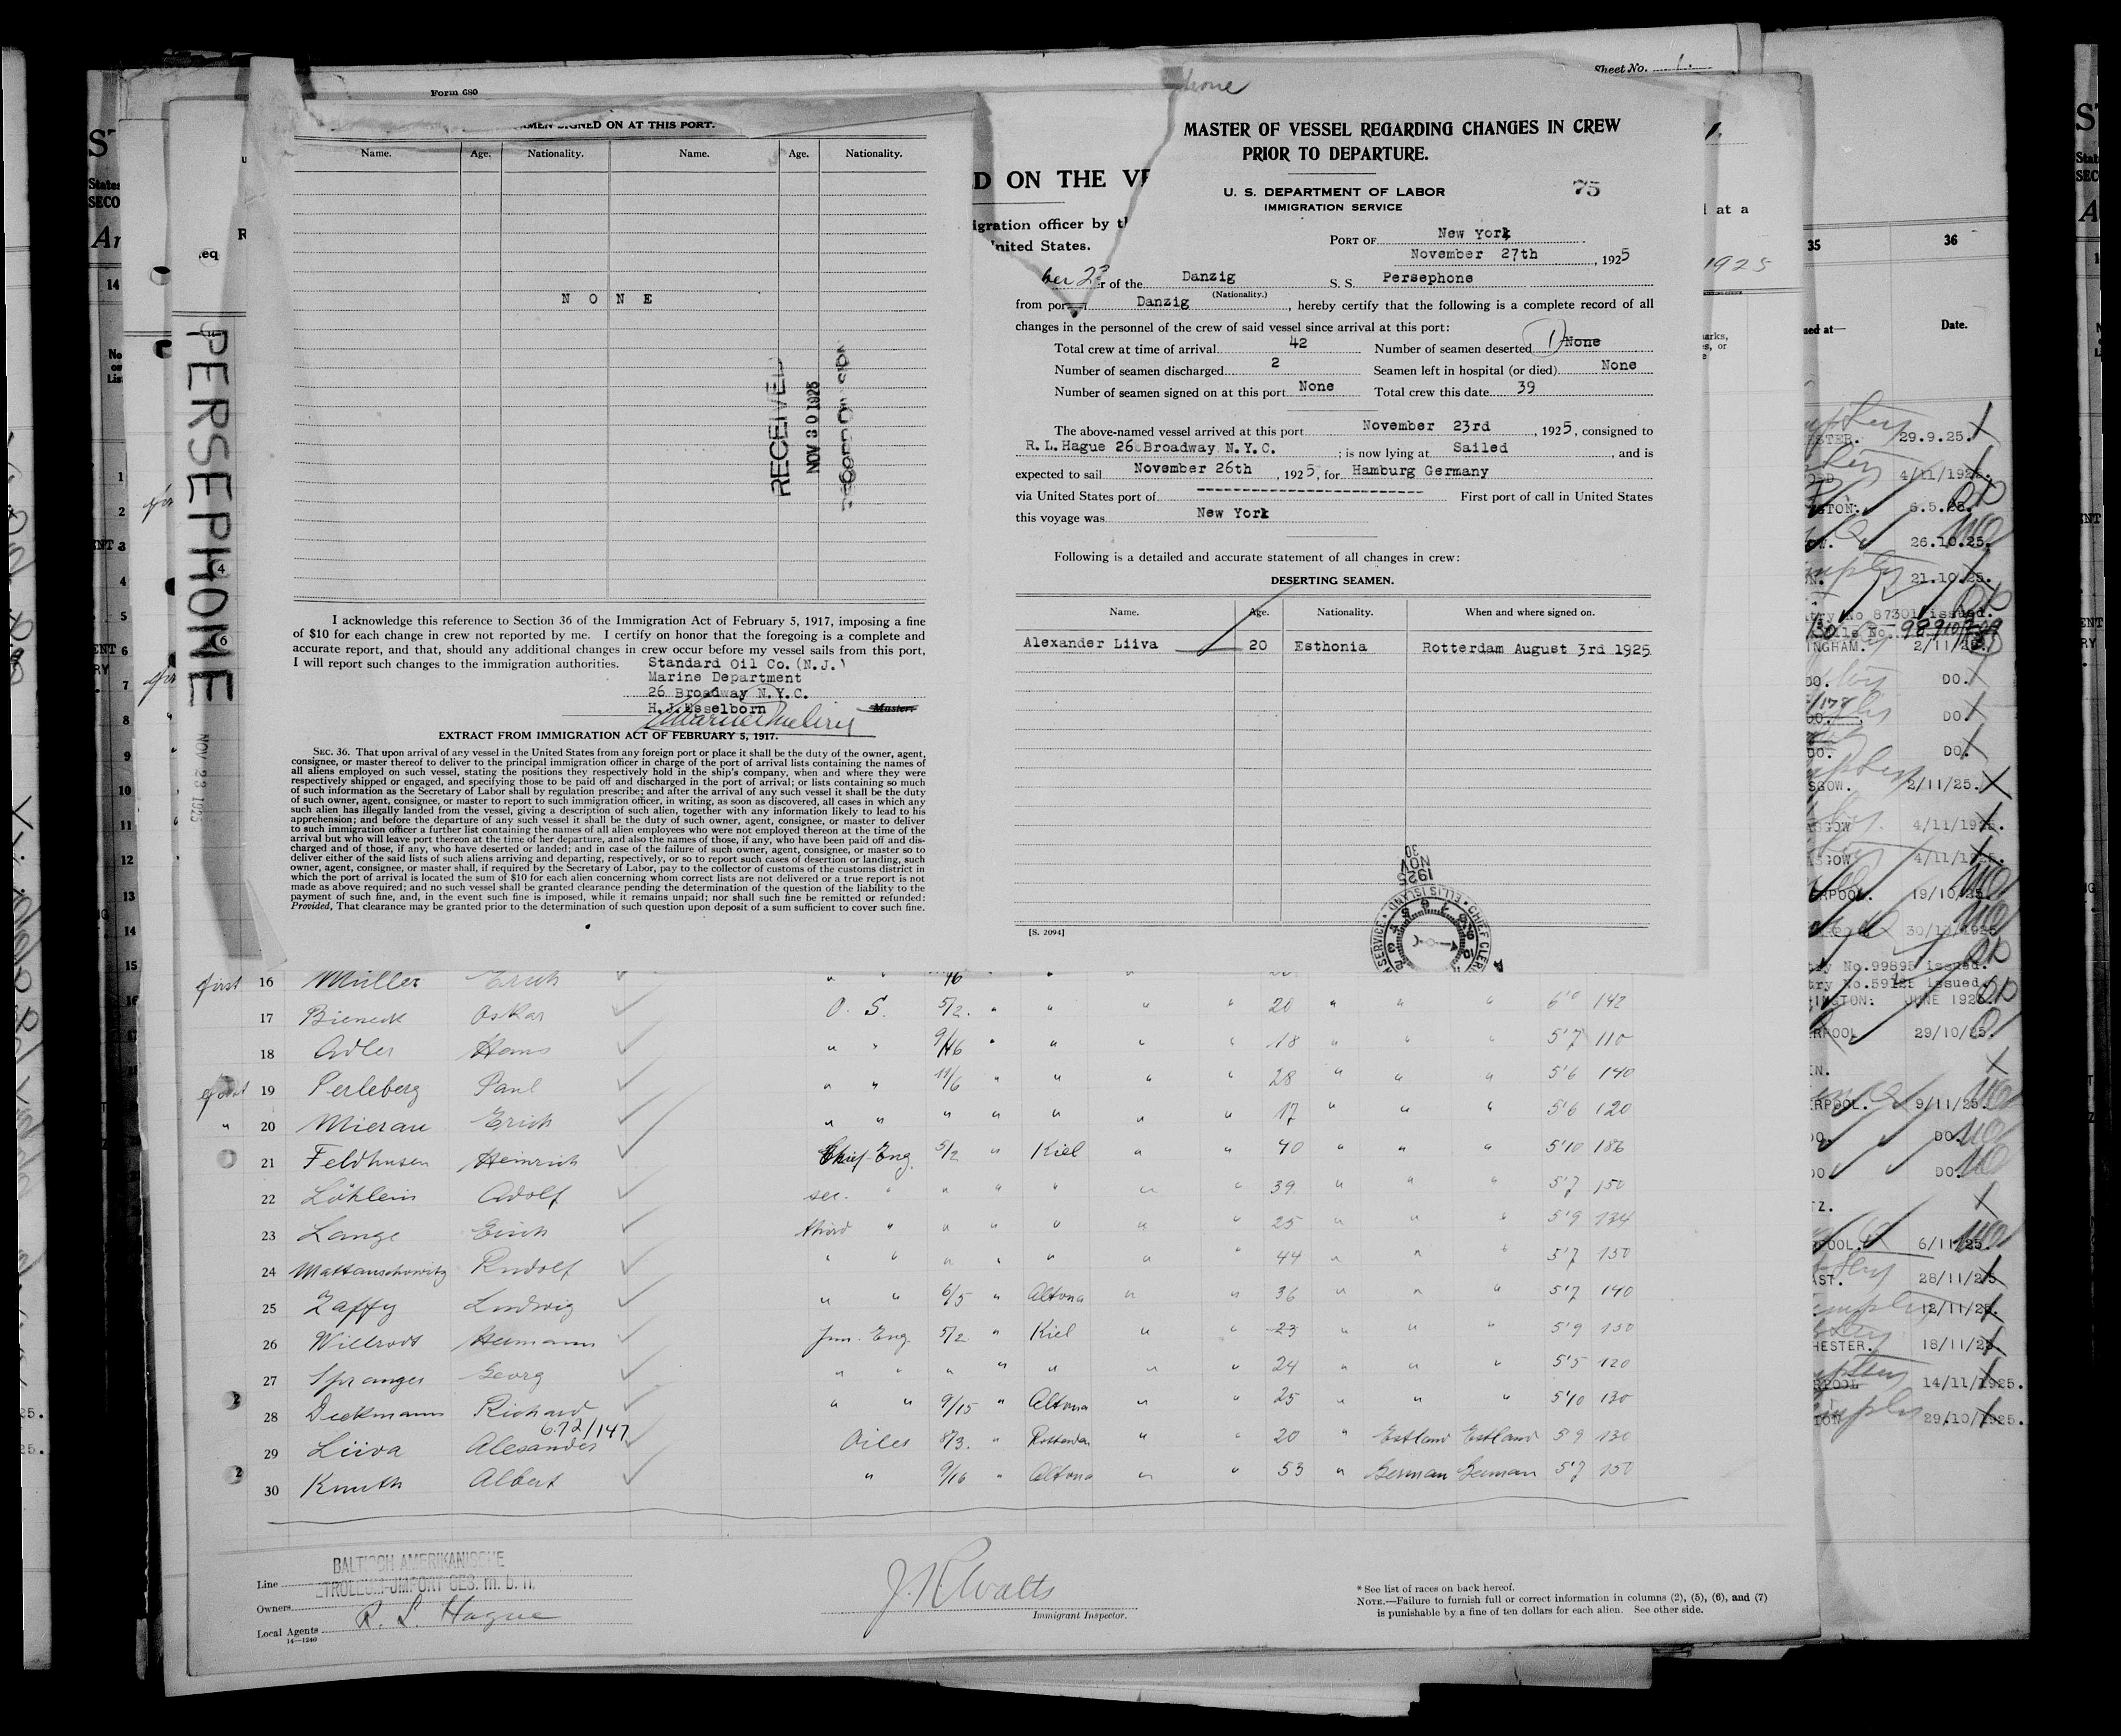 Form 680
Sheet No. 1.
SIGNED ON AT THIS PORT.
Name. Age. Nationality. Name. Age. Nationality.
NONE
RECEIVED
NOV 30 1925
PERSEPHONE
NOV 23 1925
I acknowledge this reference to Section 36 of the Immigration Act of February 5, 1917, imposing a fine
of $10 for each change in crew not reported by me. I certify on honor that the foregoing is a complete and
accurate report, and that, should any additional changes in crew occur before my vessel sails from this port,
I will report such changes to the immigration authorities.
Standard Oil Co. (N.J.)
Marine Department
26 Broadway N.Y.C.
H.J.Esselborn
Master.
EXTRACT FROM IMMIGRATION ACT OF FEBRUARY 5, 1917.
SEC. 36. That upon arrival of any vessel in the United States from any foreign port or place it shall be the duty of the owner, agent,
consignee, or master thereof to deliver to the principal immigration officer in charge of the port of arrival lists containing the names of
all aliens employed on such vessel, stating the positions they respectively hold in the ship's company, when and where they were
respectively shipped or engaged, and specifying those to be paid off and discharged in the port of arrival; or lists containing so much
of such information as the Secretary of Labor shall by regulation prescribe; and after the arrival of any such vessel it shall be the duty
of such owner, agent, consignee, or master to report to such immigration officer, in writing, as soon as discovered, all cases in which any
such alien has illegally landed from the vessel, giving a description of such alien, together with any information likely to lead to his
apprehension; and before the departure of any such vessel it shall be the duty of such owner, agent, consignee, or master to deliver
to such immigration officer a further list containing the names of all alien employees who were not employed thereon at the time of the
arrival but who will leave port thereon at the time of her departure, and also the names of those, if any, who have been paid off and dis-
charged and of those, if any, who have deserted or landed; and in case of the failure of such owner, agent, consignee, or master so to
deliver either of the said lists of such aliens arriving and departing, respectively, or so to report such cases of desertion or landing, such
owner, agent, consignee, or master shall, if required by the Secretary of Labor, pay to the collector of customs of the customs district in
which the port of arrival is located the sum of $10 for each alien concerning whom correct lists are not delivered or a true report is not
made as above required; and no such vessel shall be granted clearance pending the determination of the question of the liability to the
payment of such fine, and, in the event such fine is imposed, while it remains unpaid; nor shall such fine be remitted or refunded:
Provided, That clearance may be granted prior to the determination of such question upon deposit of a sum sufficient to cover such fine.
D ON THE VE
igration officer by th
United States.
MASTER OF VESSEL REGARDING CHANGES IN CREW
PRIOR TO DEPARTURE.
U. S. DEPARTMENT OF LABOR
IMMIGRATION SERVICE
75
PORT OF New York
November 27th, 1925
r of the Danzig S. S. Persephone
(Nationality.)
from port Danzig, hereby certify that the following is a complete record of all
changes in the personnel of the crew of said vessel since arrival at this port:
Total crew at time of arrival 42 Number of seamen deserted 1 None
Number of seamen discharged 2 Seamen left in hospital (or died) None
Number of seamen signed on at this port None Total crew this date 39
The above-named vessel arrived at this port November 23rd, 1925, consigned to
R.L.Hague 26 Broadway N.Y.C.; is now lying at Sailed, and is
expected to sail November 26th, 1925, for Hamburg Germany
via United States port of First port of call in United States
this voyage was New York
Following is a detailed and accurate statement of all changes in crew:
DESERTING SEAMEN.
Name. Age. Nationality. When and where signed on.
Alexander Liiva 20 Esthonia Rotterdam August 3rd 1925
[S. 2094]
1925 NOV 30
ELLIS ISLAND
first 16 Müller Erich
17 Bieneck Oskar O. S. 5/2. " " " " 20 " " " 6'0 142
18 Adler Hans " " 9/16 " " " " 18 " " " 5'7 110
19 Perleberg Paul " " 11/6 " " " " 28 " " " 5'6 140
" 20 Mierau Erich " " " " " " " 17 " " " 5'6 120
21 Feldhusen Heinrich Chief Eng. 5/2 " Kiel " " 40 " " " 5'10 186
22 Löhlein Adolf sec. " " " " " " 39 " " " 5'7 150
23 Lange Erich third " " " " " " 25 " " " 5'9 134
24 Mattauschowitz Rudolf " " " " " " " 44 " " " 5'7 150
25 Zaffy Ludwig " " 6/5 " Altona " " 36 " " " 5'7 140
26 Willrodt Hermann Jun. Eng. 5/2 " Kiel " " 23 " " " 5'9 130
27 Spranger Georg " " " " " " " 24 " " " 5'5 120
2 28 Dieckmann Richard " " 9/15 " Altona " " 25 " " " 5'10 130
672/147
29 Liiva Alexander Oiler 8/3. " Rotterdam " " 20 " Estland Estland 5'9 130
2 30 Knuth Albert " 9/16 " Altona " " 53 " German German 5'7 150
Line BALTISCH AMERIKANISCHE
Owners PETROLEUM-IMPORT GES. m. b. H.
Local Agents R. L. Hague
14—1240
J R Watts
Immigrant Inspector.
* See list of races on back hereof.
NOTE.—Failure to furnish full or correct information in columns (2), (5), (6), and (7)
is punishable by a fine of ten dollars for each alien. See other side.
at a
1925
35 36
Date.
29.9.25.
4/11/1925.
26.10.25.
21.10.25.
try No 87301 issued.
INGHAM. 2/11/25.
DO. DO.
DO. DO.
DO. DO.
SGOW. 2/11/25.
ASGOW 4/11/1925.
ASGOW 4/11/1925.
RPOOL. 19/10/25.
30/10/1925
try No.99895 issued.
INGTON: JUNE 1925.
RPOOL 29/10/25.
RPOOL. 9/11/25.
DO. DO.
DO DO.
TZ.
RPOOL. 6/11/25.
AST. 28/11/25
12/11/25.
HESTER. 18/11/25
RPOOL 14/11/1925.
TON 29/10/1925.